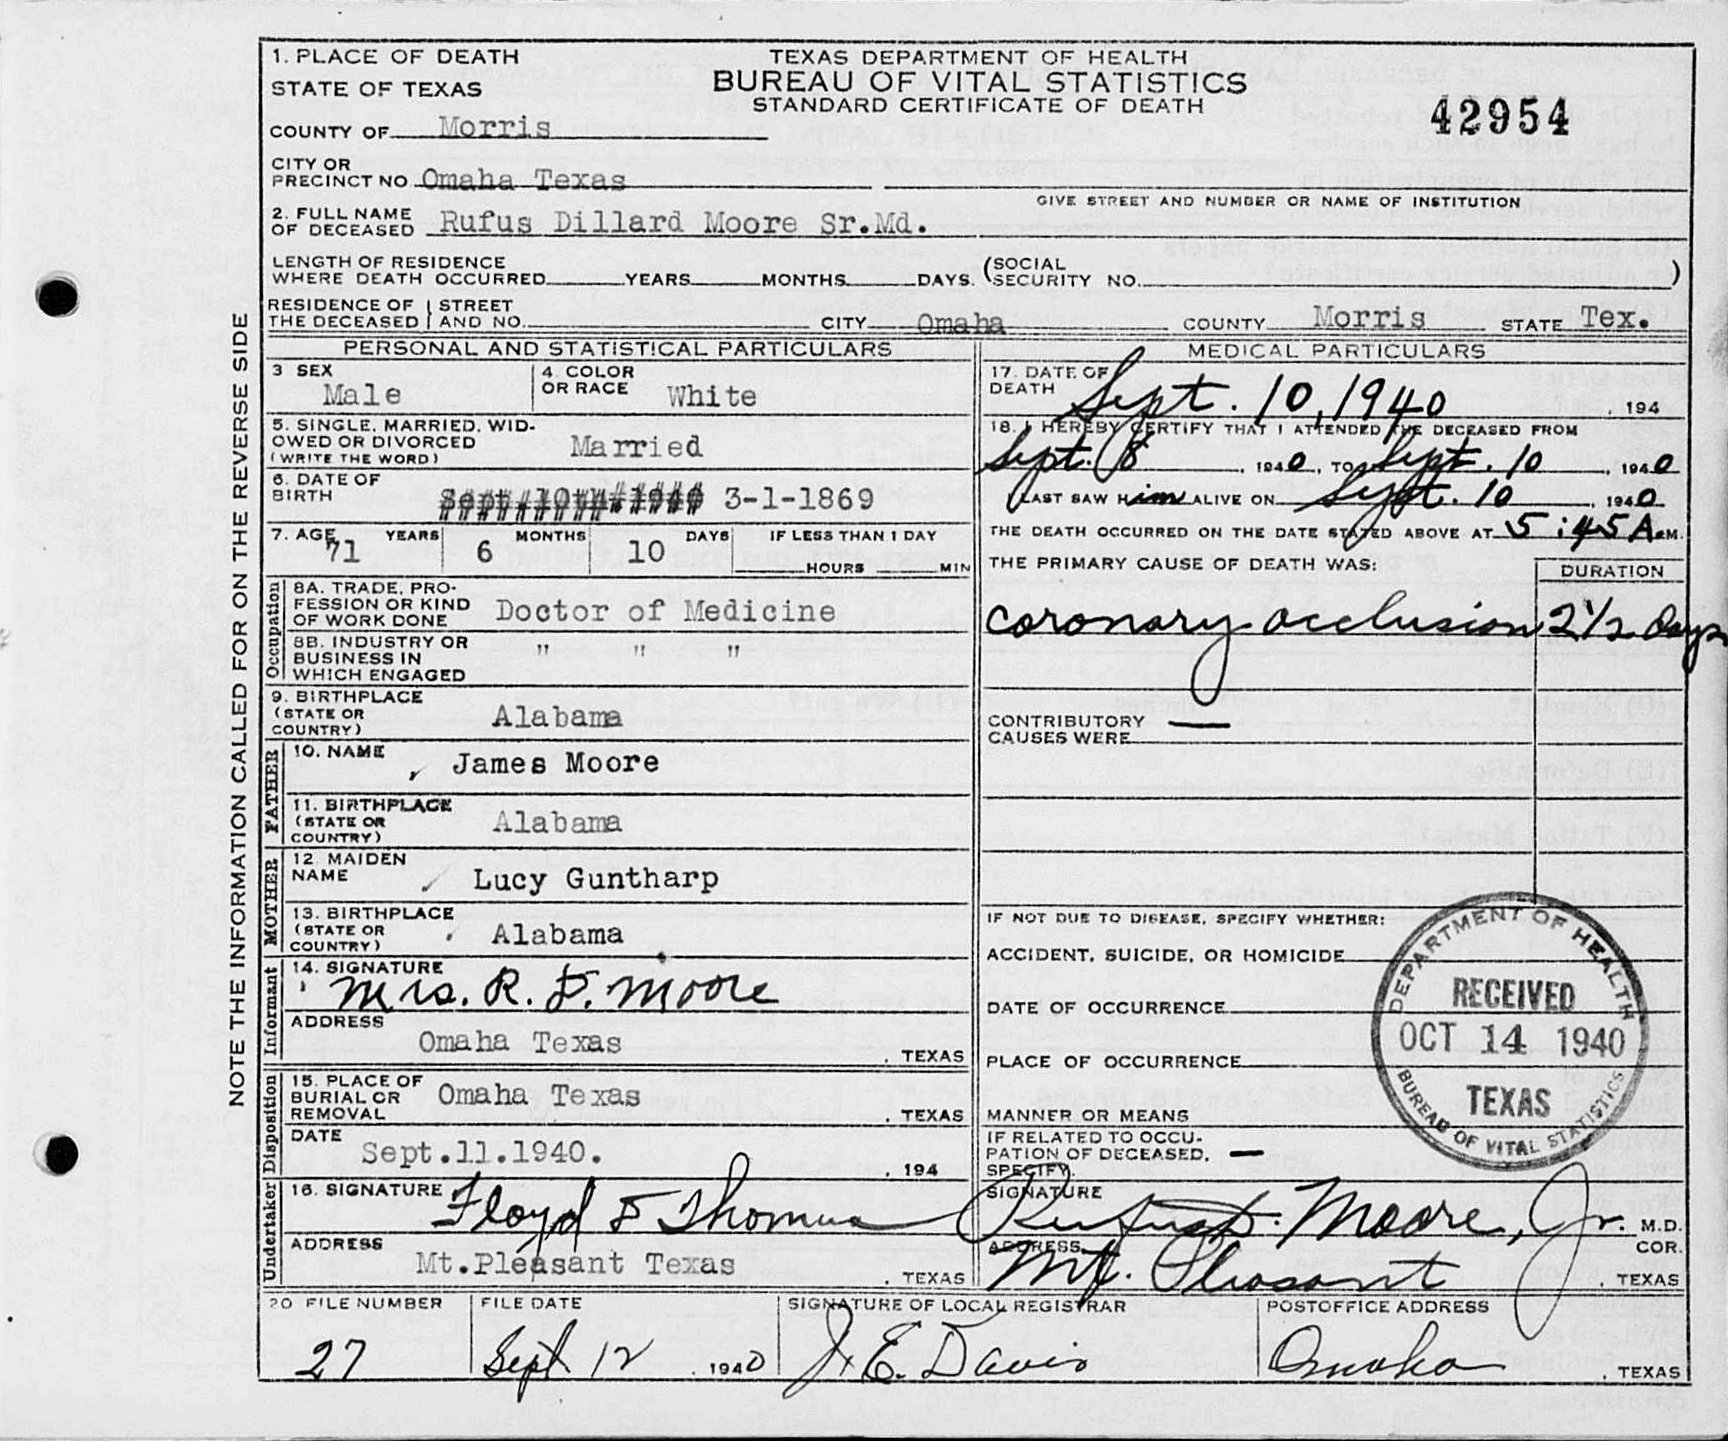 1. PLACE OF DEATH
STATE OF TEXAS
TEXAS DEPARTMENT OF HEALTH
BUREAU OF VITAL STATISTICS
STANDARD CERTIFICATE OF DEATH
42954
COUNTY OF Morris
CITY OR PRECINCT NO. Omaha Texas
GIVE STREET AND NUMBER OR NAME OF INSTITUTION
2. FULL NAME OF DECEASED Rufus Dillard Moore Sr.Md.
LENGTH OF RESIDENCE WHERE DEATH OCCURRED YEARS MONTHS DAYS. (SOCIAL SECURITY NO. )
RESIDENCE OF THE DECEASED STREET AND NO. CITY Omaha COUNTY Morris STATE Tex.
PERSONAL AND STATISTICAL PARTICULARS
3 SEX Male
4. COLOR OR RACE White
5. SINGLE, MARRIED, WIDOWED OR DIVORCED (WRITE THE WORD) Married
6. DATE OF BIRTH 3-1-1869
7. AGE 71 YEARS 6 MONTHS 10 DAYS IF LESS THAN 1 DAY HOURS MIN
Occupation
8A. TRADE, PROFESSION OR KIND OF WORK DONE Doctor of Medicine
8B. INDUSTRY OR BUSINESS IN WHICH ENGAGED " " "
9. BIRTHPLACE (STATE OR COUNTRY) Alabama
FATHER
10. NAME James Moore
11. BIRTHPLACE (STATE OR COUNTRY) Alabama
MOTHER
12. MAIDEN NAME Lucy Guntharp
13. BIRTHPLACE (STATE OR COUNTRY) Alabama
Informant
14. SIGNATURE Mrs. R. D. Moore
ADDRESS Omaha Texas , TEXAS
Disposition
15. PLACE OF BURIAL OR REMOVAL Omaha Texas , TEXAS
DATE Sept.11.1940. , 194
Undertaker
16. SIGNATURE Floyd E Thomas
ADDRESS Mt.Pleasant Texas , TEXAS
MEDICAL PARTICULARS
17. DATE OF DEATH Sept. 10, 1940 , 194
18. I HEREBY CERTIFY THAT I ATTENDED THE DECEASED FROM
Sept. 8 , 1940, TO Sept. 10 , 1940
I LAST SAW H im ALIVE ON Sept. 10 , 1940
THE DEATH OCCURRED ON THE DATE STATED ABOVE AT 5:45 A.M.
THE PRIMARY CAUSE OF DEATH WAS: DURATION
coronary occlusion 2 1/2 days
CONTRIBUTORY CAUSES WERE —
IF NOT DUE TO DISEASE, SPECIFY WHETHER:
ACCIDENT, SUICIDE, OR HOMICIDE
DATE OF OCCURRENCE
PLACE OF OCCURRENCE
MANNER OR MEANS
IF RELATED TO OCCUPATION OF DECEASED, SPECIFY. —
SIGNATURE Rufus D. Moore, Jr. M.D. COR.
ADDRESS Mt. Pleasant , TEXAS
DEPARTMENT OF HEALTH
RECEIVED
OCT 14 1940
TEXAS
BUREAU OF VITAL STATISTICS
20 FILE NUMBER 27
FILE DATE Sept 12 , 1940
SIGNATURE OF LOCAL REGISTRAR J. E. Davis
POSTOFFICE ADDRESS Omaha , TEXAS
NOTE THE INFORMATION CALLED FOR ON THE REVERSE SIDE